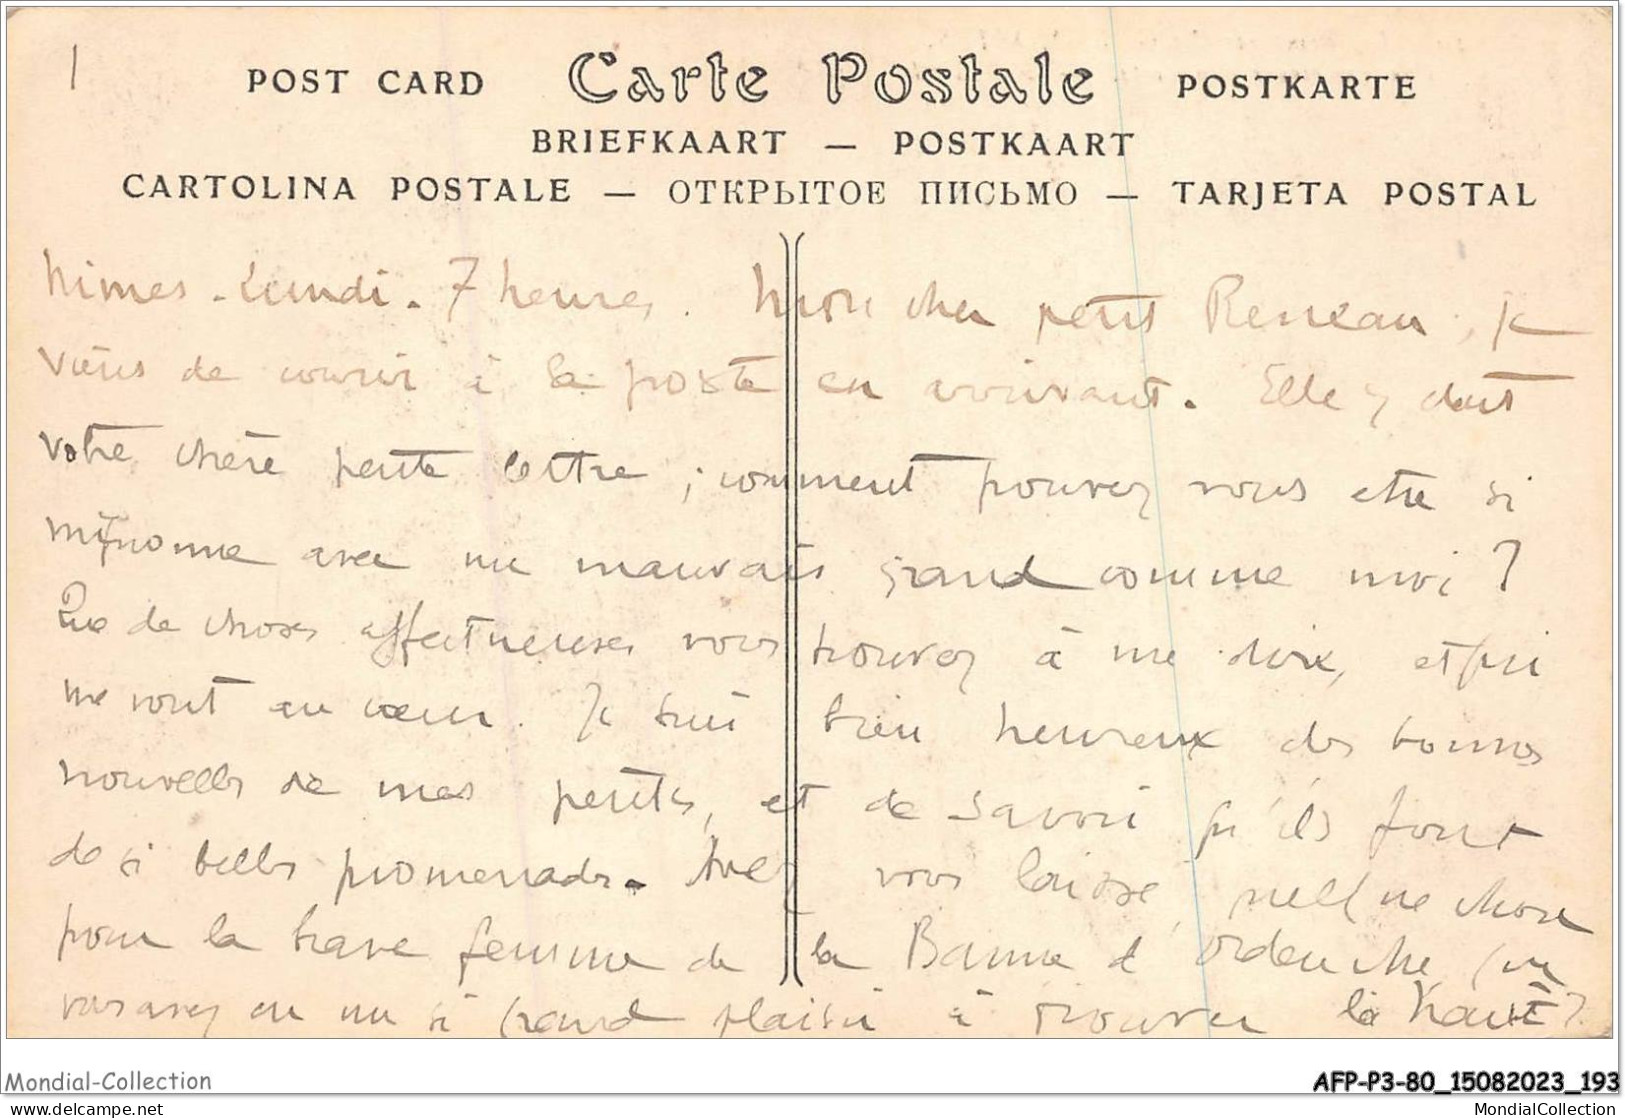 POST CARD Carte Postale POSTKARTE
BRIEFKAART — POSTKAART
CARTOLINA POSTALE — ОТКРЫТОЕ ПИСЬМО — TARJETA POSTAL
Nimes - Lundi - 7 heures. Mon cher petit Reneau, je
viens de courir à la poste en arrivant. Elle y était
votre chère petite lettre ; comment pouvez vous etre si
mignonne avec un mauvais grand comme moi ?
Que de choses affectueuses vous trouvez à me dire, et qui
me vont au cœur. Je suis bien heureux des bonnes
nouvelles de mes petits, et de savoir qu'ils font
de si belles promenades. Avez vous laissé quelque chose
pour la brave femme de la Banne d'Ordenche (vu
vous avez eu un si grand plaisir à trouver là haut ?
Mondial-Collection
AFP-P3-80_15082023_193
www.delcampe.net
MondialCollection